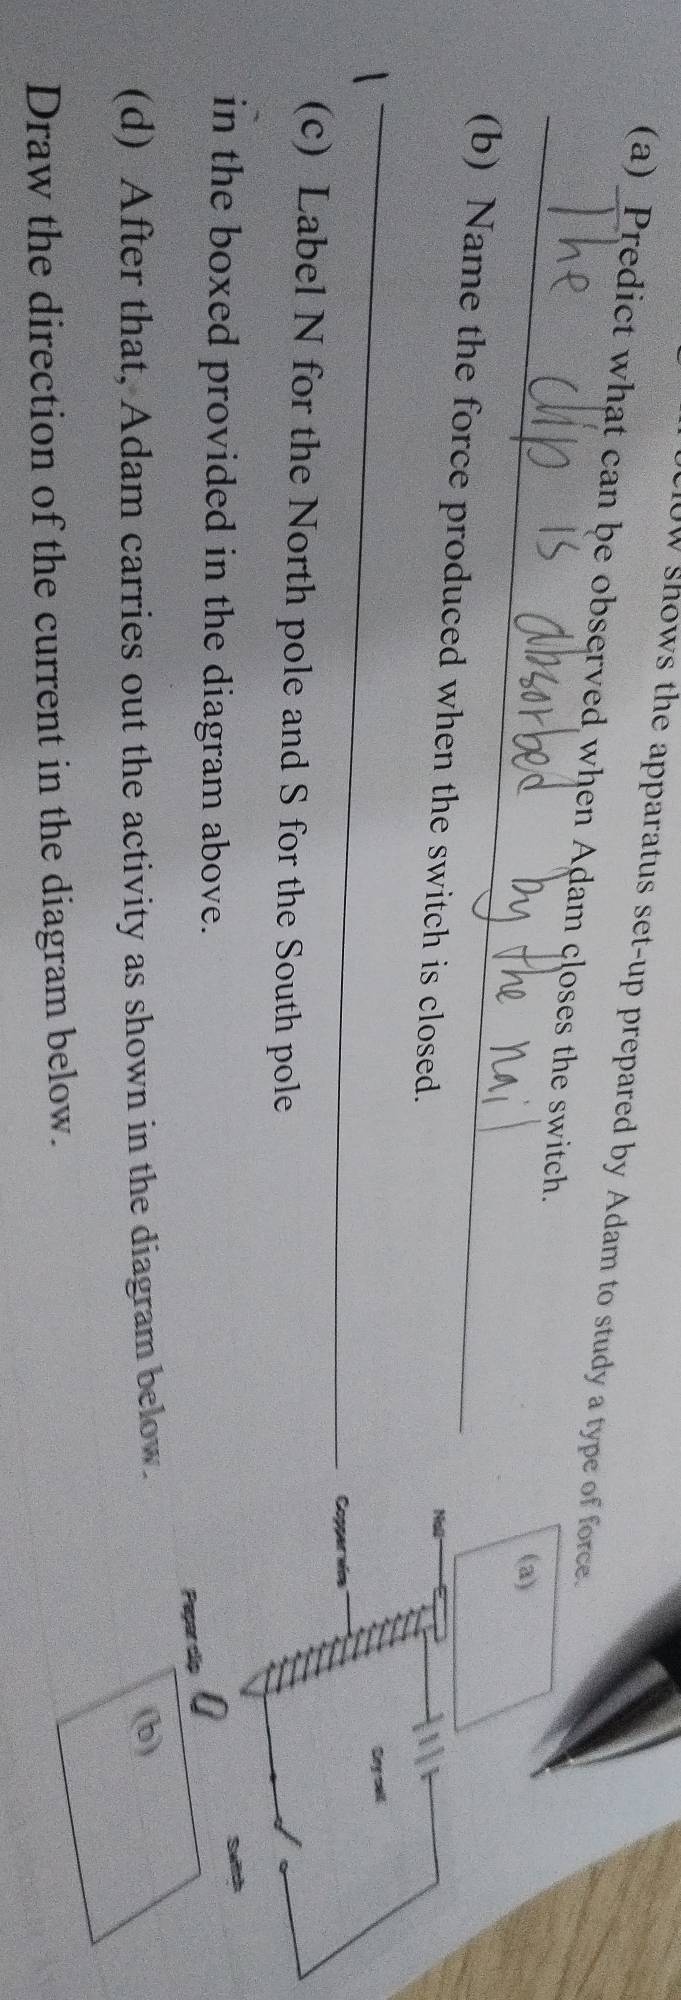 below shows the apparatus set-up prepared by Adam to study a type of force.
(a) Predict what can be observed when Adam closes the switch.
The clip is absorbed by the nail
(b) Name the force produced when the switch is closed.
(c) Label N for the North pole and S for the South pole
in the boxed provided in the diagram above.
(d) After that, Adam carries out the activity as shown in the diagram below.
Draw the direction of the current in the diagram below.
(a)
Nail
Dry cell
Copper wire
Switch
Paper clip
(b)